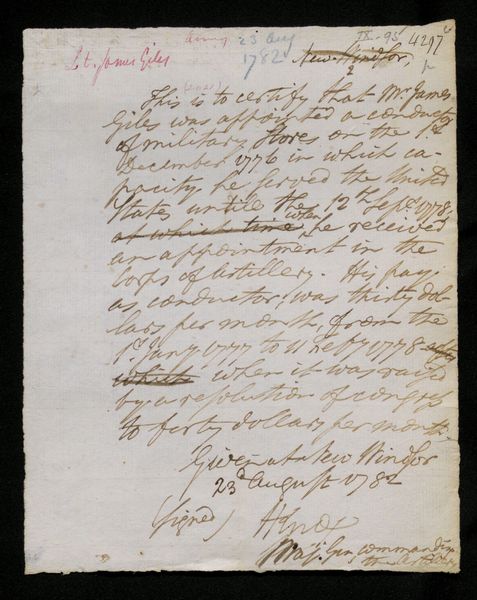 army 23 Aug
1782
IX-95
4297
Lt. James Giles
New Windsor,
This is to certify that Mr. James
Giles was appointed a conductor
of military Stores on the 1st
December 1776 in which ca-
pacity, he served the United
States untile the 12th Sepr 1778,
at which time when he received
an appointment in the
Corps of artillery. His pay,
as conductor, was thirty dol-
lars per month, from the
1st Jany 1777 to 11 Feby 1778
which when it was raised
by a resolution of congress
to forty dollars per month
Given at New Windsor
23d august 1782
(signed) HKnox
Maj. Gen commanding
the Artillery